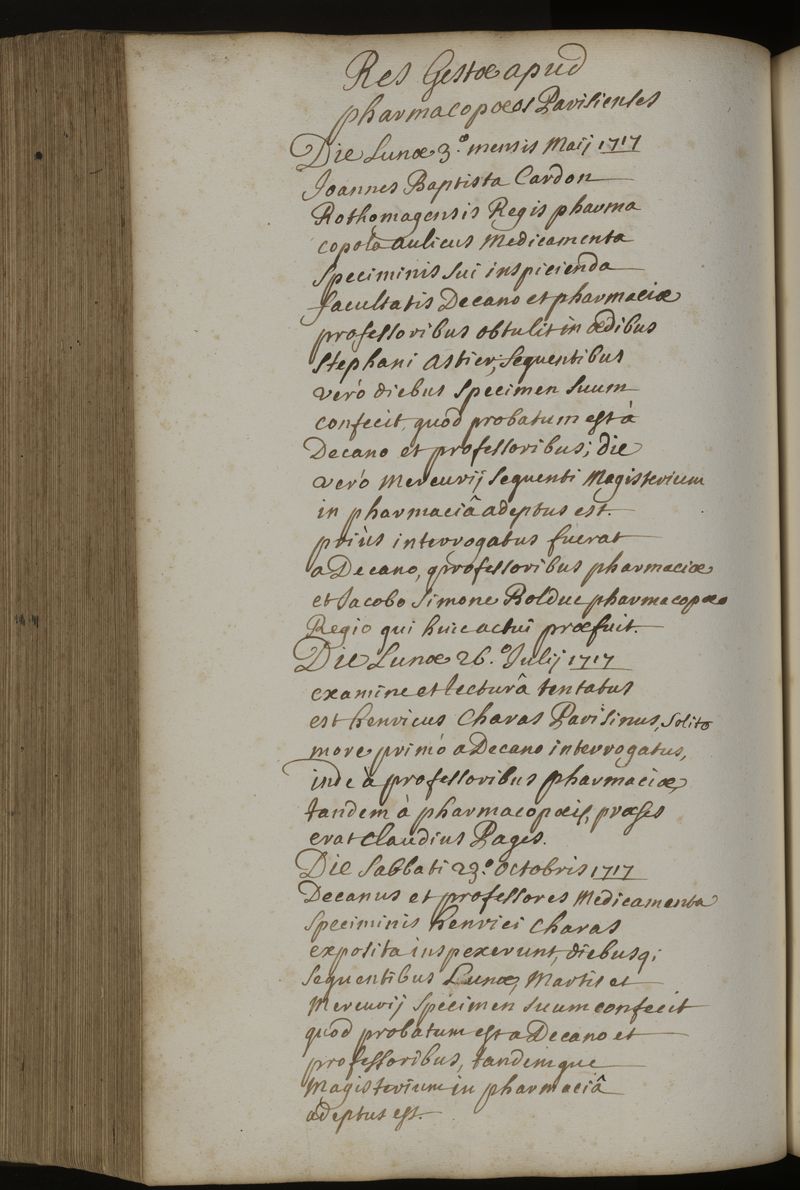 Res Gestæ apud
pharmacopœos Parisienses
Die Lunæ 3.º mensis Maij 1717
Joannes Baptista Cardon
Rothomagensis Regis pharma
copola aulicus Medicamenta
Speciminis sui inspicienda
facultatis Decano et pharmaciæ
professoribus obtulit in ædibus
Stephani Astier; sequentibus
verò diebus Specimen suum
confecit, quod probatum est à
Decano et professoribus; die
verò Mercurij sequenti Magisterium
in pharmaciâ adeptus est.
priùs interrogatus fuerat
a Decano, professoribus pharmaciæ
et Jacobo Simone Bolduc pharmacopæo
Regio qui huic actui præfuit.
Die Lunæ 26.º Julij 1717
examine et lecturâ tentatus
est henricus Charas Parisinus, solito
more primò a Decano interrogatus,
inde à professoribus pharmaciæ,
tandem à pharmacopœis, præses
erat Claudius Pages.
Die Sabbati 23.º octobris 1717
Decanus et professores Medicamenta
Speciminis henrici Charas
exposita inspexerunt, diebusq;
sequentibus Lunæ, Martis et
Mercurij Specimen suum confecit
quod probatum est a Decano et
professoribus, tandemque
Magisterium in pharmaciâ
adeptus est.